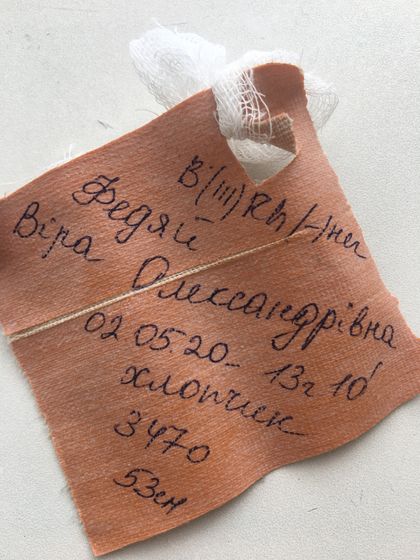 B(III) Rh(-) нег
Федяй
Віра Олександрівна
02.05.20 - 13г 10'
хлопчик
3470
53см